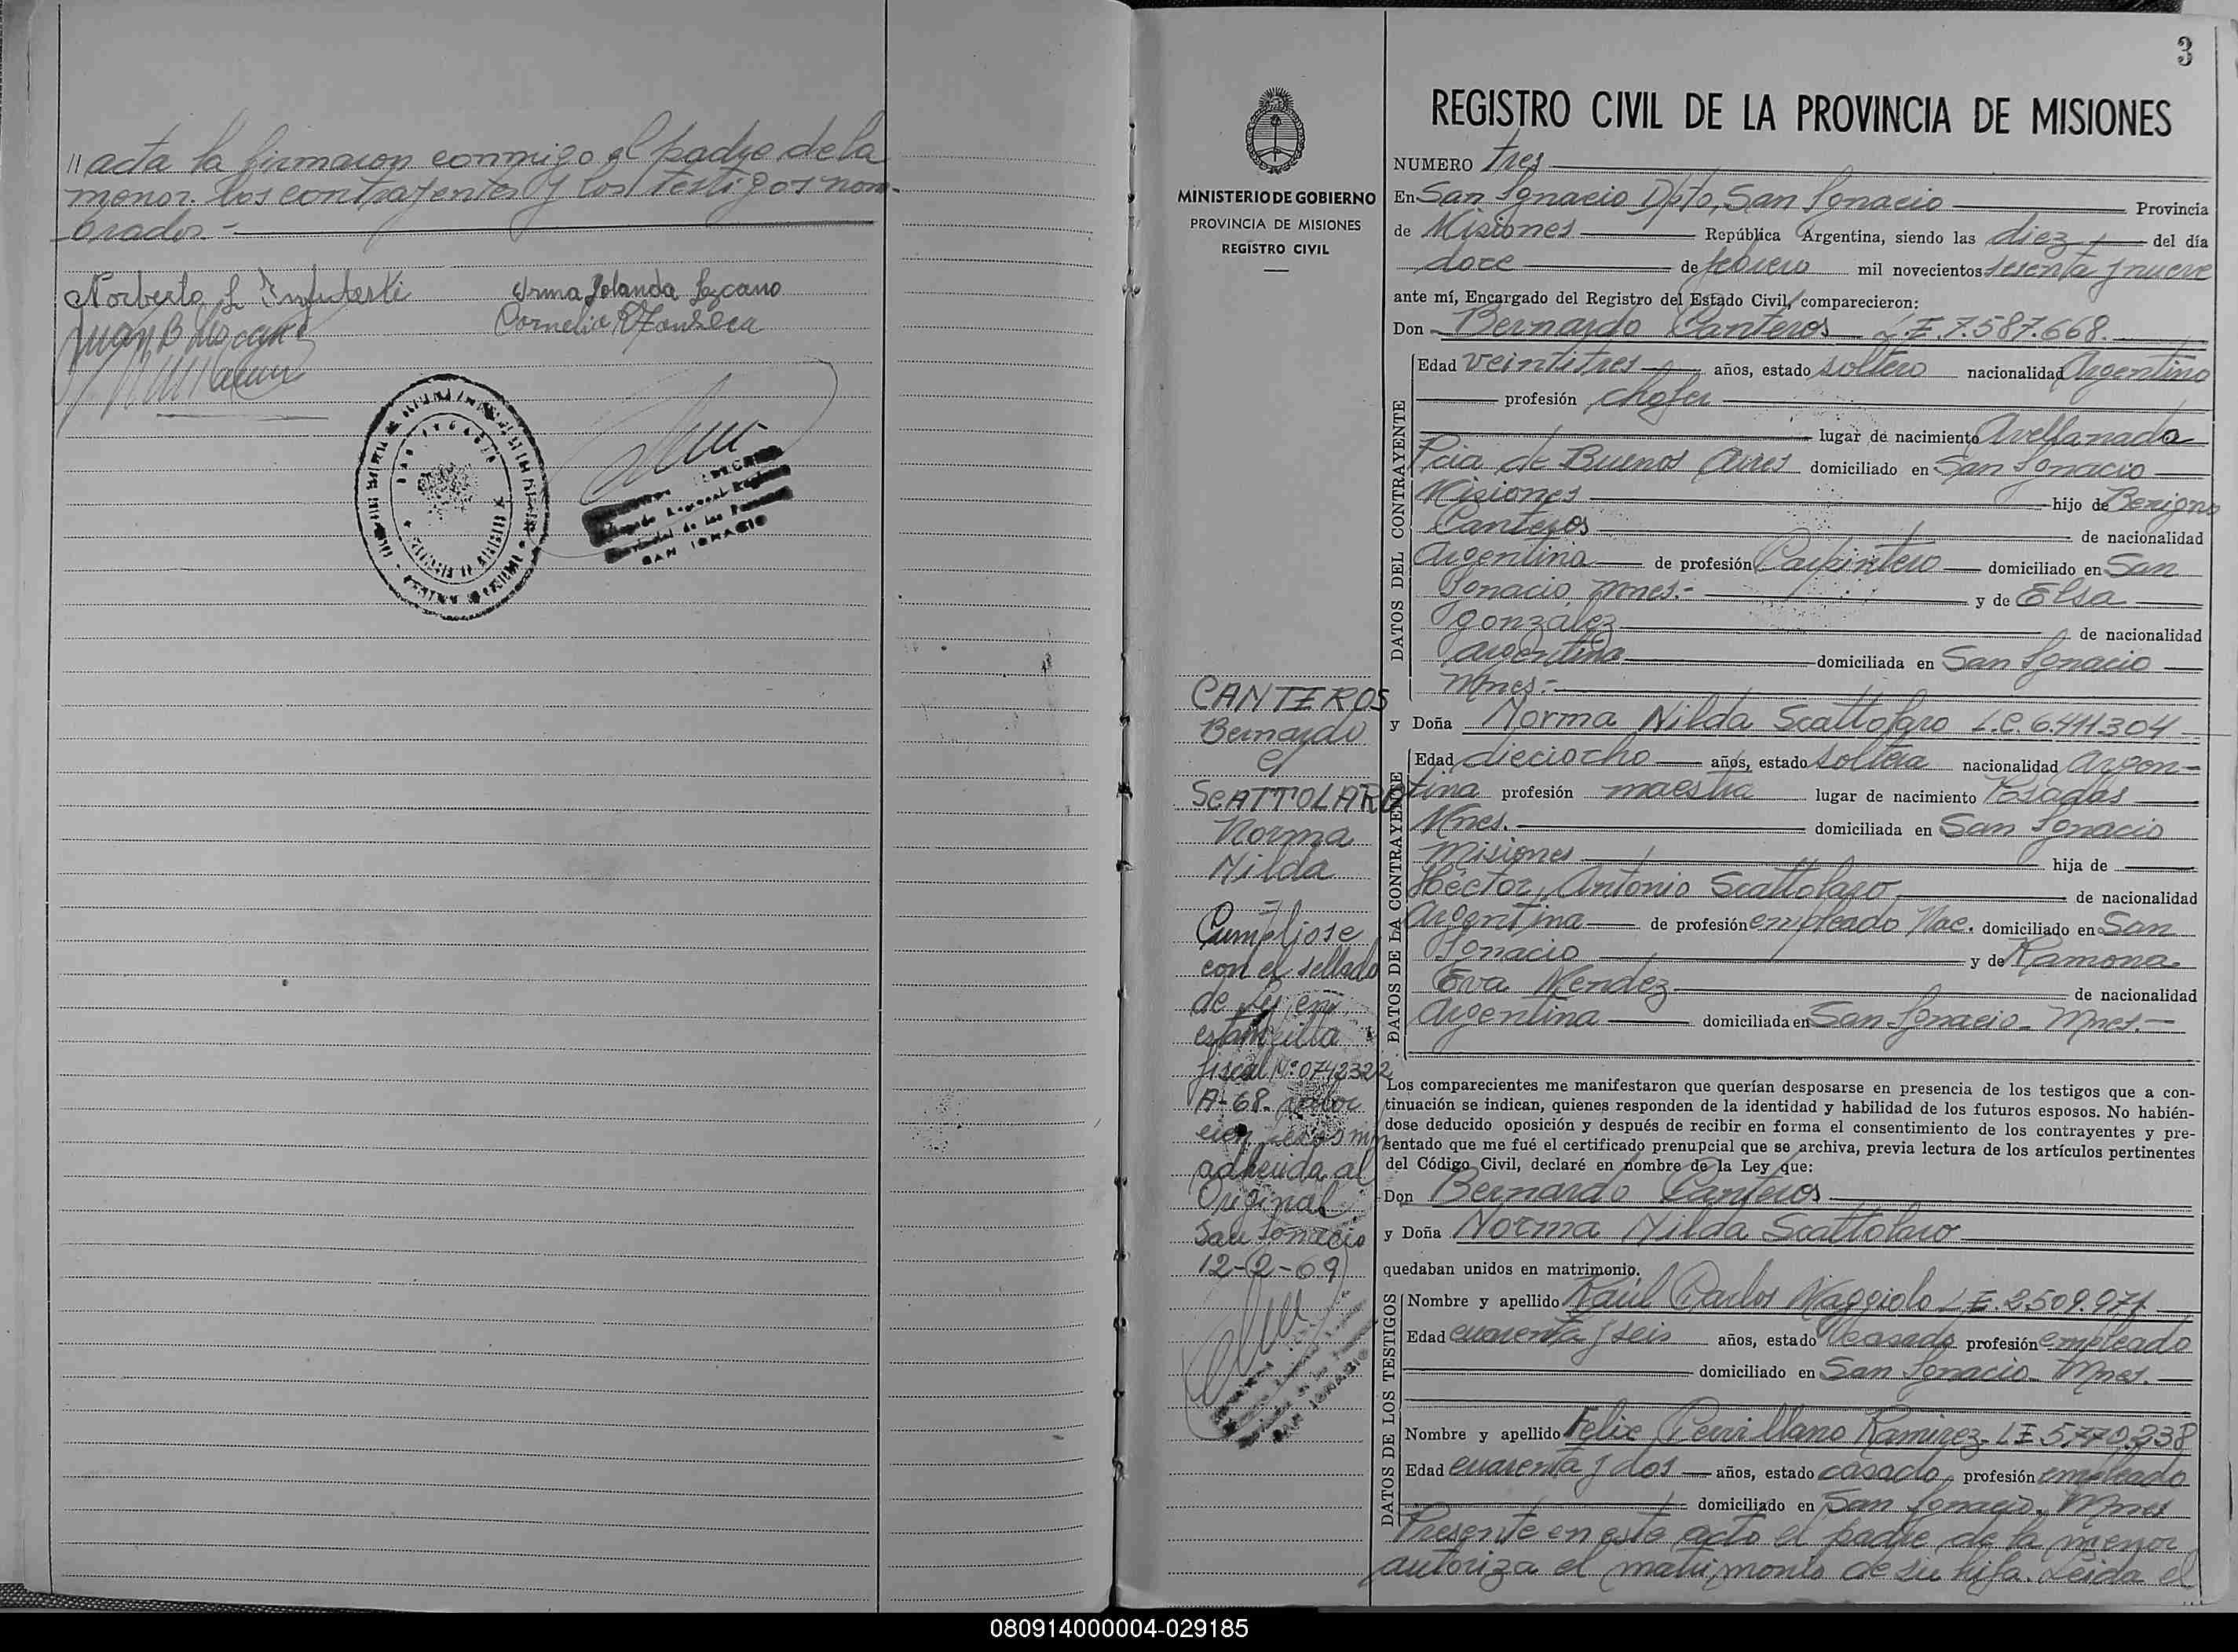 // acta la firmaron conmigo el padre de la
menor. los contrayentes y los testigos nom-
brados.-
Norberto
Irma Yolanda Lezcano
Juan B Lezcano
Cornelia R Fonseca
SAN IGNACIO
3
MINISTERIO DE GOBIERNO
PROVINCIA DE MISIONES
REGISTRO CIVIL
CANTEROS
Bernardo
y
SCATTOLARO
Norma
Nilda
Cumpliose
con el sellado
de Ley en
estampilla
fiscal Nº 0742322
A-68- valor
cien pesos m/n
adherida al
Original
San Ignacio
12-2-69
SAN IGNACIO
REGISTRO CIVIL DE LA PROVINCIA DE MISIONES
NUMERO tres
En San Ignacio Dpto, San Ignacio Provincia
de Misiones República Argentina, siendo las diez del día
doce de febrero mil novecientos sesenta y nueve
ante mí, Encargado del Registro del Estado Civil, comparecieron:
Don Bernardo Canteros L.E. 7.587.668.
DATOS DEL CONTRAYENTE
Edad veintitres años, estado soltero nacionalidad Argentino
profesión chofer
lugar de nacimiento Avellanada
Pcia de Buenos Aires domiciliado en San Ignacio
Misiones hijo de Benigno
Canteros de nacionalidad
Argentina de profesión Carpintero domiciliado en San
Ignacio Mnes.- y de Elsa
González de nacionalidad
argentina domiciliada en San Ignacio
Mnes.-
y Doña Norma Nilda Scattolaro L.C. 6.411.304
DATOS DE LA CONTRAYENTE
Edad dieciocho años, estado soltera nacionalidad Argen-
tina profesión maestra lugar de nacimiento Posadas
Mnes. domiciliada en San Ignacio
Misiones hija de
Héctor Antonio Scattolaro de nacionalidad
Argentina de profesión empleado Nac. domiciliado en San
Ignacio y de Ramona
Eva Mendez de nacionalidad
Argentina domiciliada en San Ignacio - Mnes.-
Los comparecientes me manifestaron que querían desposarse en presencia de los testigos que a con-
tinuación se indican, quienes responden de la identidad y habilidad de los futuros esposos. No habién-
dose deducido oposición y después de recibir en forma el consentimiento de los contrayentes y pre-
sentado que me fué el certificado prenupcial que se archiva, previa lectura de los artículos pertinentes
del Código Civil, declaré en nombre de la Ley que:
Don Bernardo Canteros
y Doña Norma Nilda Scattolaro
quedaban unidos en matrimonio.
DATOS DE LOS TESTIGOS
Nombre y apellido Raúl Carlos Naggiolo L.E. 2.509.971
Edad cuarenta y seis años, estado casado profesión empleado
domiciliado en San Ignacio - Mnes.
Nombre y apellido Felix Ramirez - L E 5.770.238
Edad cuarenta y dos años, estado casado, profesión empleado
domiciliado en San Ignacio - Mnes
Presente en este acto el padre de la menor
autoriza el matrimonio de su hija. Leida el
080914000004-029185